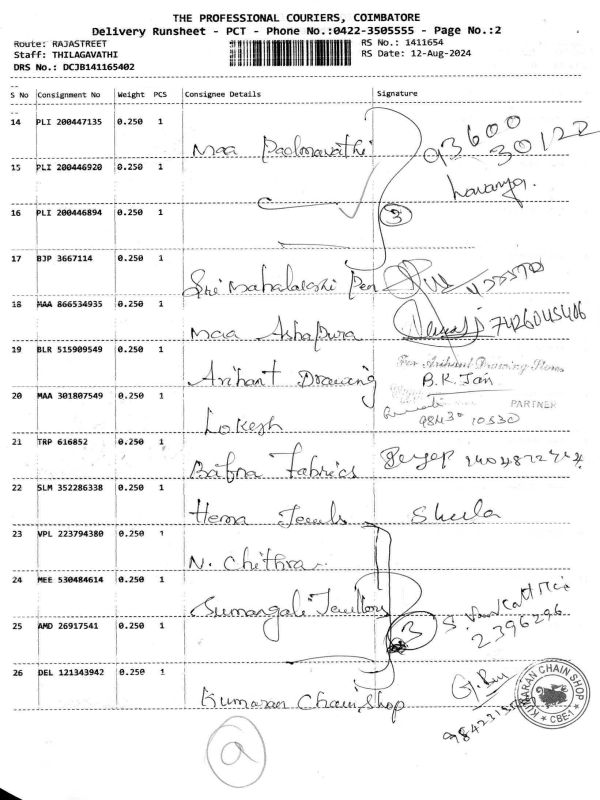 THE PROFESSIONAL COURIERS, COIMBATORE
Delivery Runsheet - PCT - Phone No.:0422-3505555 - Page No.:2
Route: RAJASTREET
RS No.: 1411654
Staff: THILAGAVATHI
RS Date: 12-Aug-2024
DRS No.: DCJB141165402
S No Consignment No Weight PCS Consignee Details Signature
14 PLI 200447135 0.250 1
Maa Padmavathi 93600
30122
15 PLI 200446920 0.250 1
Lavanya.
16 PLI 200446894 0.250 1
3
17 BJP 3667114 0.250 1
Sri Mahalakshi Pen
18 MAA 866534935 0.250 1
Maa Ashapura 7426045406
19 BLR 515909549 0.250 1
For Arihant Drawing Stores
Arihant Drawing B.K. Jan
20 MAA 301807549 0.250 1
PARTNER
Lokesh 98430 10530
21 TRP 616852 0.250 1
Bafna Fabrics
22 SLM 352286338 0.250 1
Hema Jewels Sheela
23 VPL 223794380 0.250 1
N. Chithra
24 MEE 530484614 0.250 1
Sumangali Jewellers
25 AMD 26917541 0.250 1
3 2396296
26 DEL 121343942 0.250 1
Kumaran Chain Shop
KUMARAN CHAIN SHOP
CBE-1
a